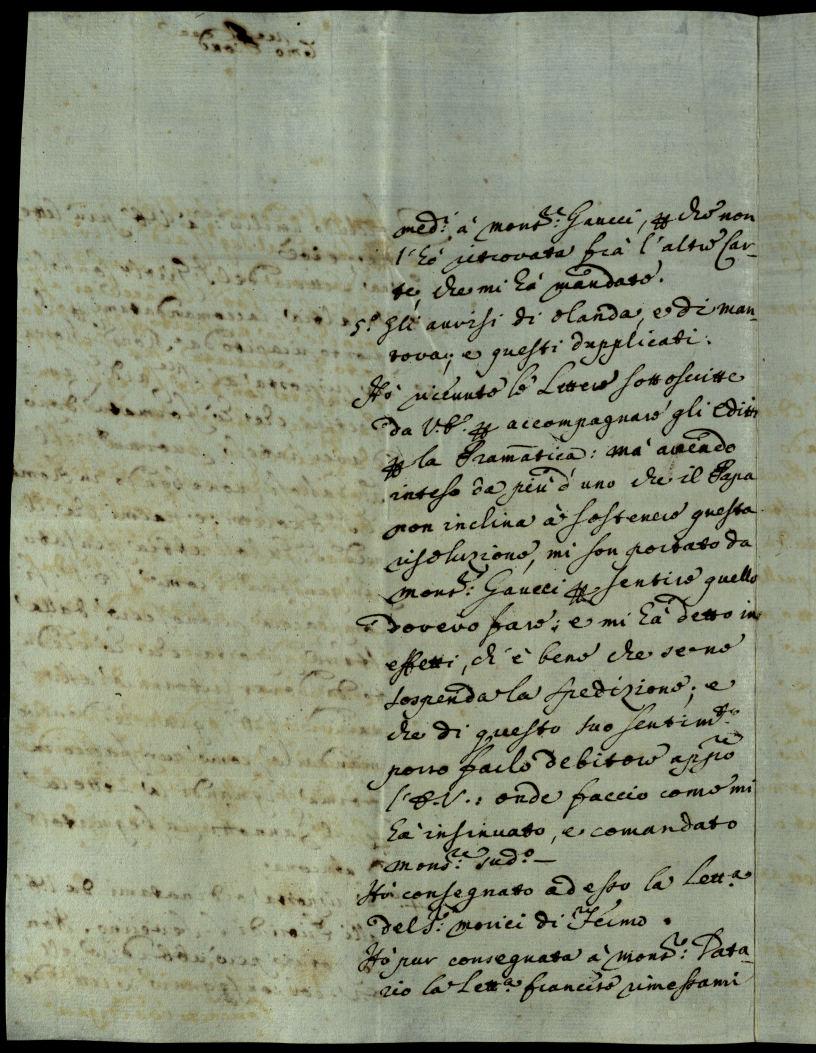 med.ª à mons.re Gaucci, ꝑ che non
l'hò ritrovata frà l'altre Car-
te, che mi hà mandate.
5.º Gli avvisi di Olanda, e di Man-
tova; e questi dupplicati.
Hò ricevute le Lettere sottoscritte
da V.E. ꝑ accompagnare gli Editti
ꝑ la Pram̃atica: mà avendo
inteso da più d'uno che il Papa
non inclina à sostenere questa
risoluzione, mi son portato da
Mons.re Gaucci ꝑ sentire quello
dovevo fare; e mi hà detto in
effetti, ch'è bene che se ne
sospenda la spedizione; e
che di questo suo sentim.to
posso farlo debitore app̃o
l'E.V.: onde faccio come mi
hà insinuato, e comandato
Mons.re sud.º
Hò consegnato ad esso la Lett.ª
del S.r Morici di Fermo.
Hò pur consegnata à Mons.re Data-
rio la Lett.ª francese rimessami